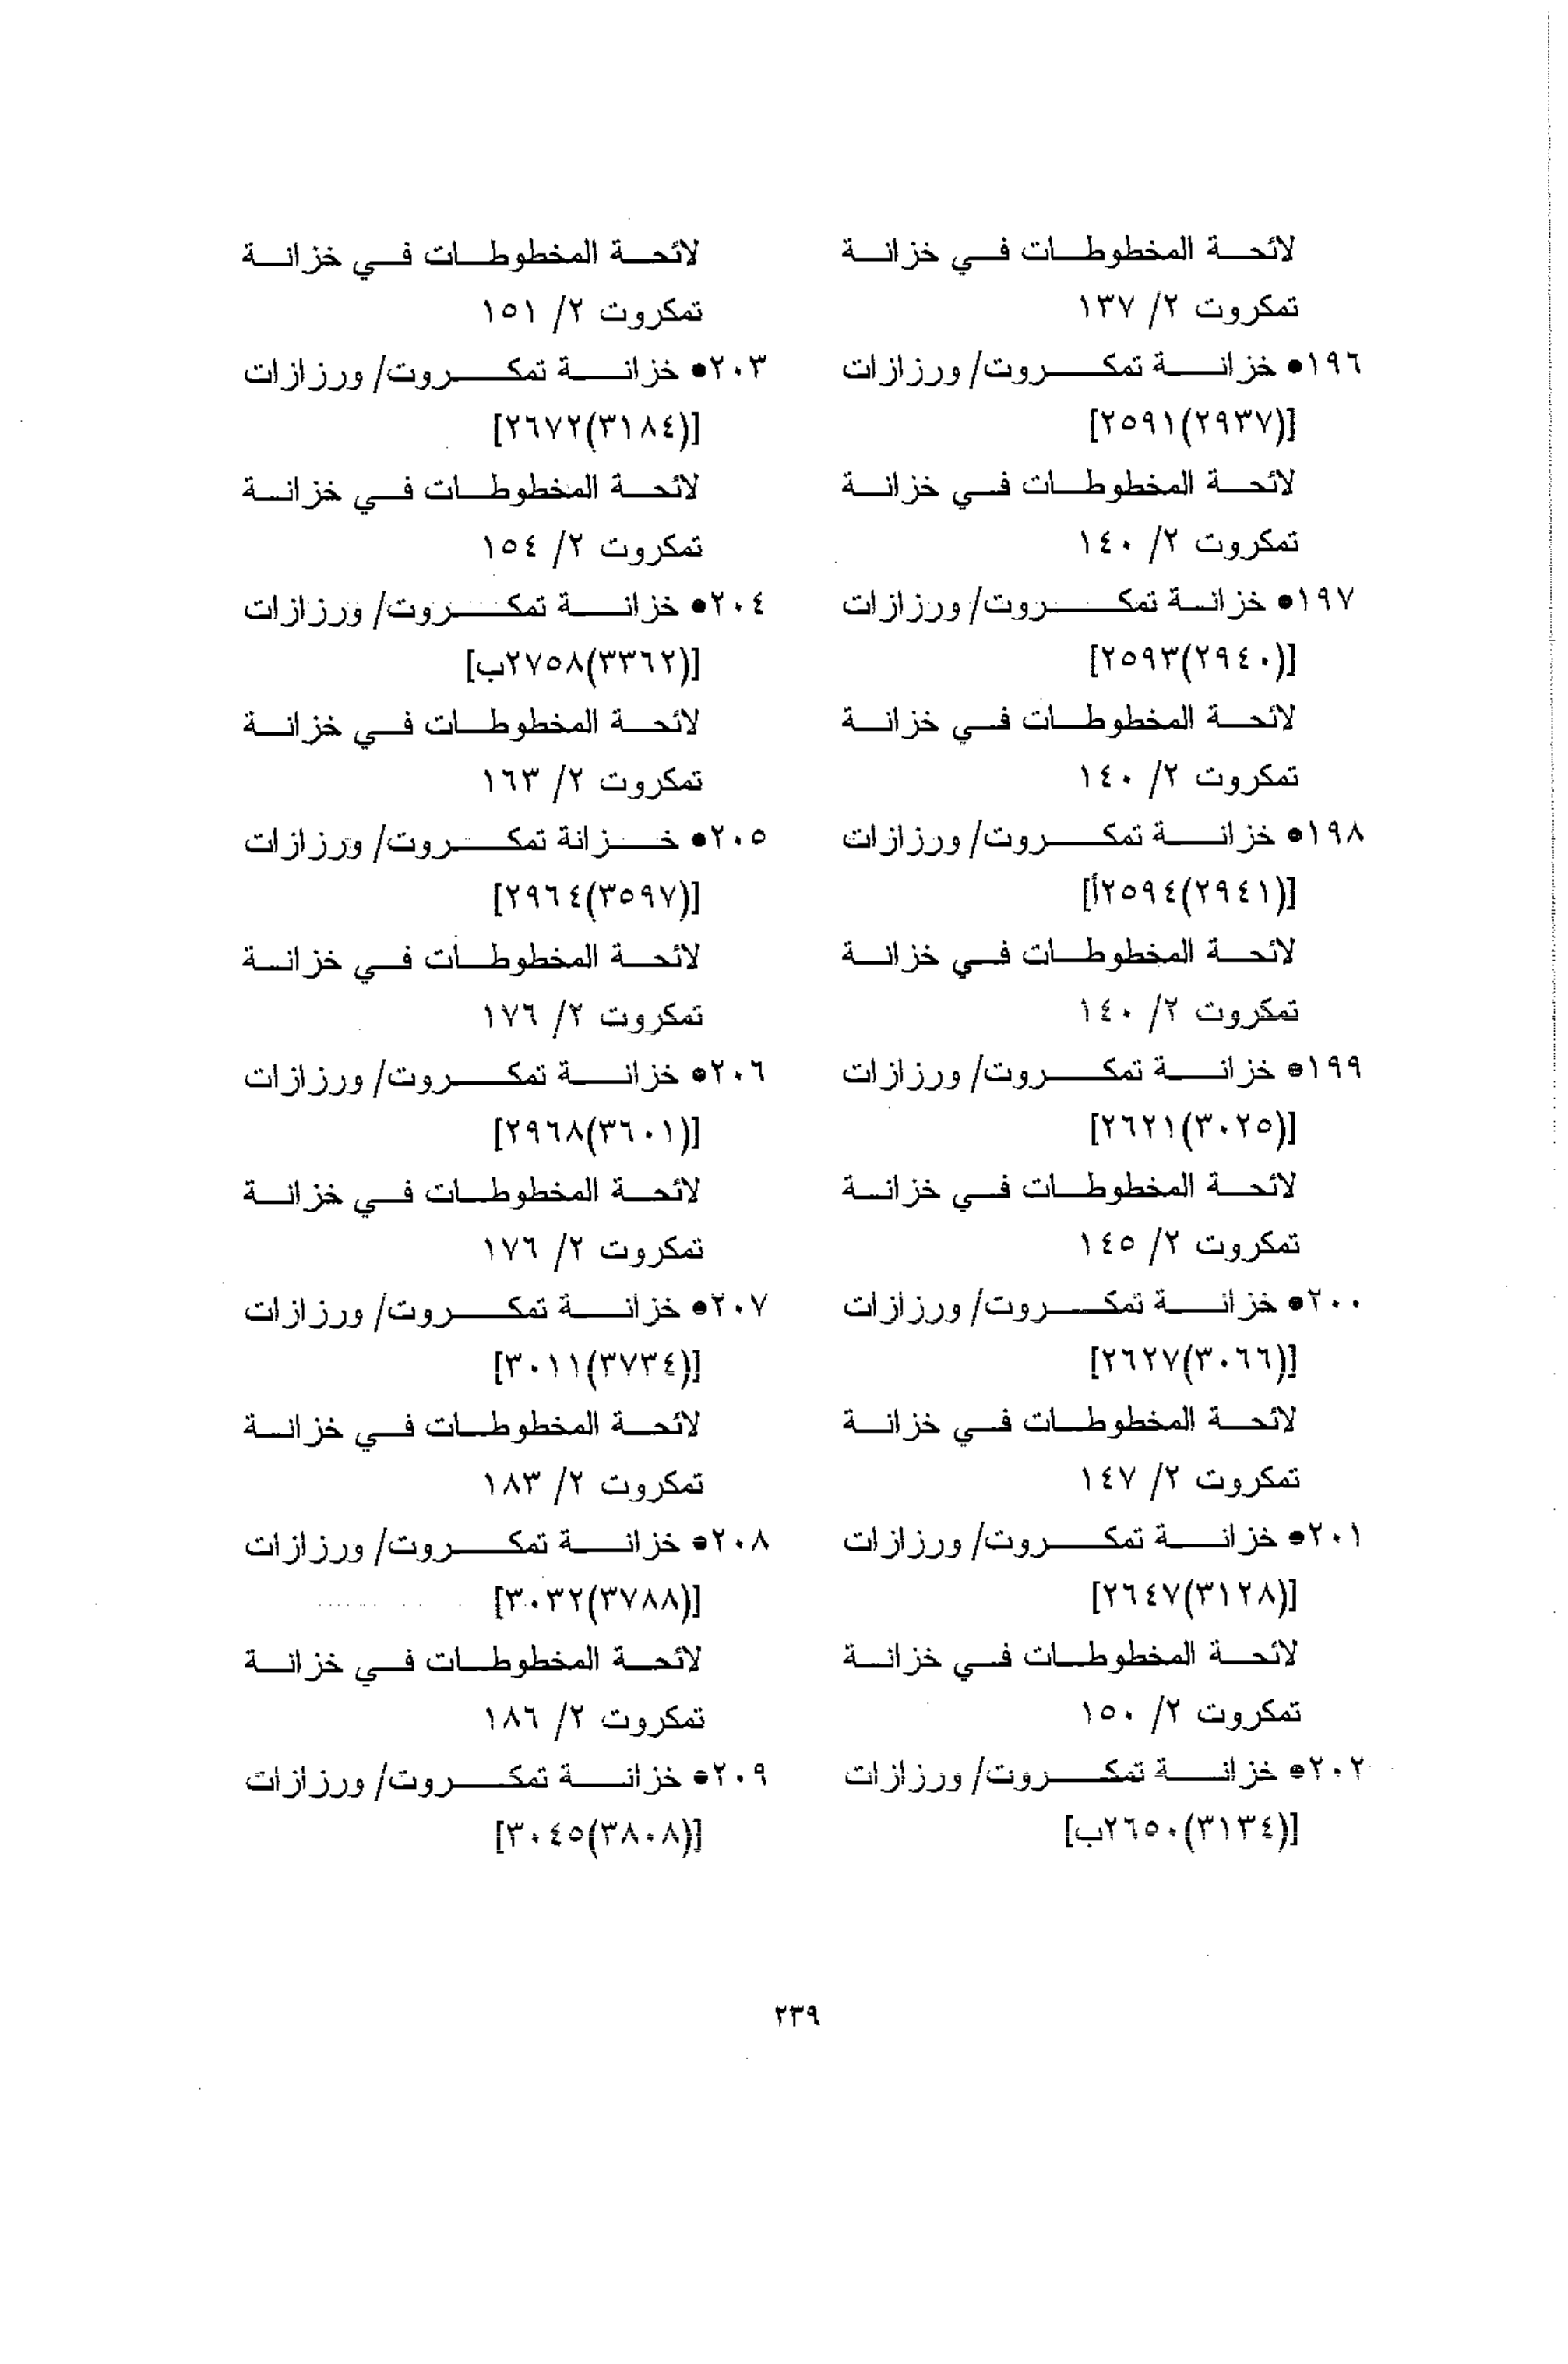 لائحة المخطوطات في خزانة
تمكروت ٢/ ١٣٧
١٩٦● خزانة تمكروت/ ورزازات
[(٢٩٣٧)٢٥٩١]
لائحة المخطوطات في خزانة
تمكروت ٢/ ١٤٠
١٩٧● خزانة تمكروت/ ورزازات
[(٢٩٤٠)٢٥٩٣]
لائحة المخطوطات في خزانة
تمكروت ٢/ ١٤٠
١٩٨● خزانة تمكروت/ ورزازات
[(٢٩٤١)٢٥٩٤أ]
لائحة المخطوطات في خزانة
تمكروت ٢/ ١٤٠
١٩٩● خزانة تمكروت/ ورزازات
[(٣٠٢٥)٢٦٢١]
لائحة المخطوطات في خزانة
تمكروت ٢/ ١٤٥
٢٠٠● خزانة تمكروت/ ورزازات
[(٣٠٦٦)٢٦٢٧]
لائحة المخطوطات في خزانة
تمكروت ٢/ ١٤٧
٢٠١● خزانة تمكروت/ ورزازات
[(٣١٢٨)٢٦٤٧]
لائحة المخطوطات في خزانة
تمكروت ٢/ ١٥٠
٢٠٢● خزانة تمكروت/ ورزازات
[(٣١٣٤)٢٦٥٠ب]
لائحة المخطوطات في خزانة
تمكروت ٢/ ١٥١
٢٠٣● خزانة تمكروت/ ورزازات
[(٣١٨٤)٢٦٧٢]
لائحة المخطوطات في خزانة
تمكروت ٢/ ١٥٤
٢٠٤● خزانة تمكروت/ ورزازات
[(٣٣٦٢)٢٧٥٨ب]
لائحة المخطوطات في خزانة
تمكروت ٢/ ١٦٣
٢٠٥● خزانة تمكروت/ ورزازات
[(٣٥٩٧)٢٩٦٤]
لائحة المخطوطات في خزانة
تمكروت ٢/ ١٧٦
٢٠٦● خزانة تمكروت/ ورزازات
[(٣٦٠١)٢٩٦٨]
لائحة المخطوطات في خزانة
تمكروت ٢/ ١٧٦
٢٠٧● خزانة تمكروت/ ورزازات
[(٣٧٣٤)٣٠١١]
لائحة المخطوطات في خزانة
تمكروت ٢/ ١٨٣
٢٠٨● خزانة تمكروت/ ورزازات
[(٣٧٨٨)٣٠٣٢]
لائحة المخطوطات في خزانة
تمكروت ٢/ ١٨٦
٢٠٩● خزانة تمكروت/ ورزازات
[(٣٨٠٨)٣٠٤٥]
٢٣٩